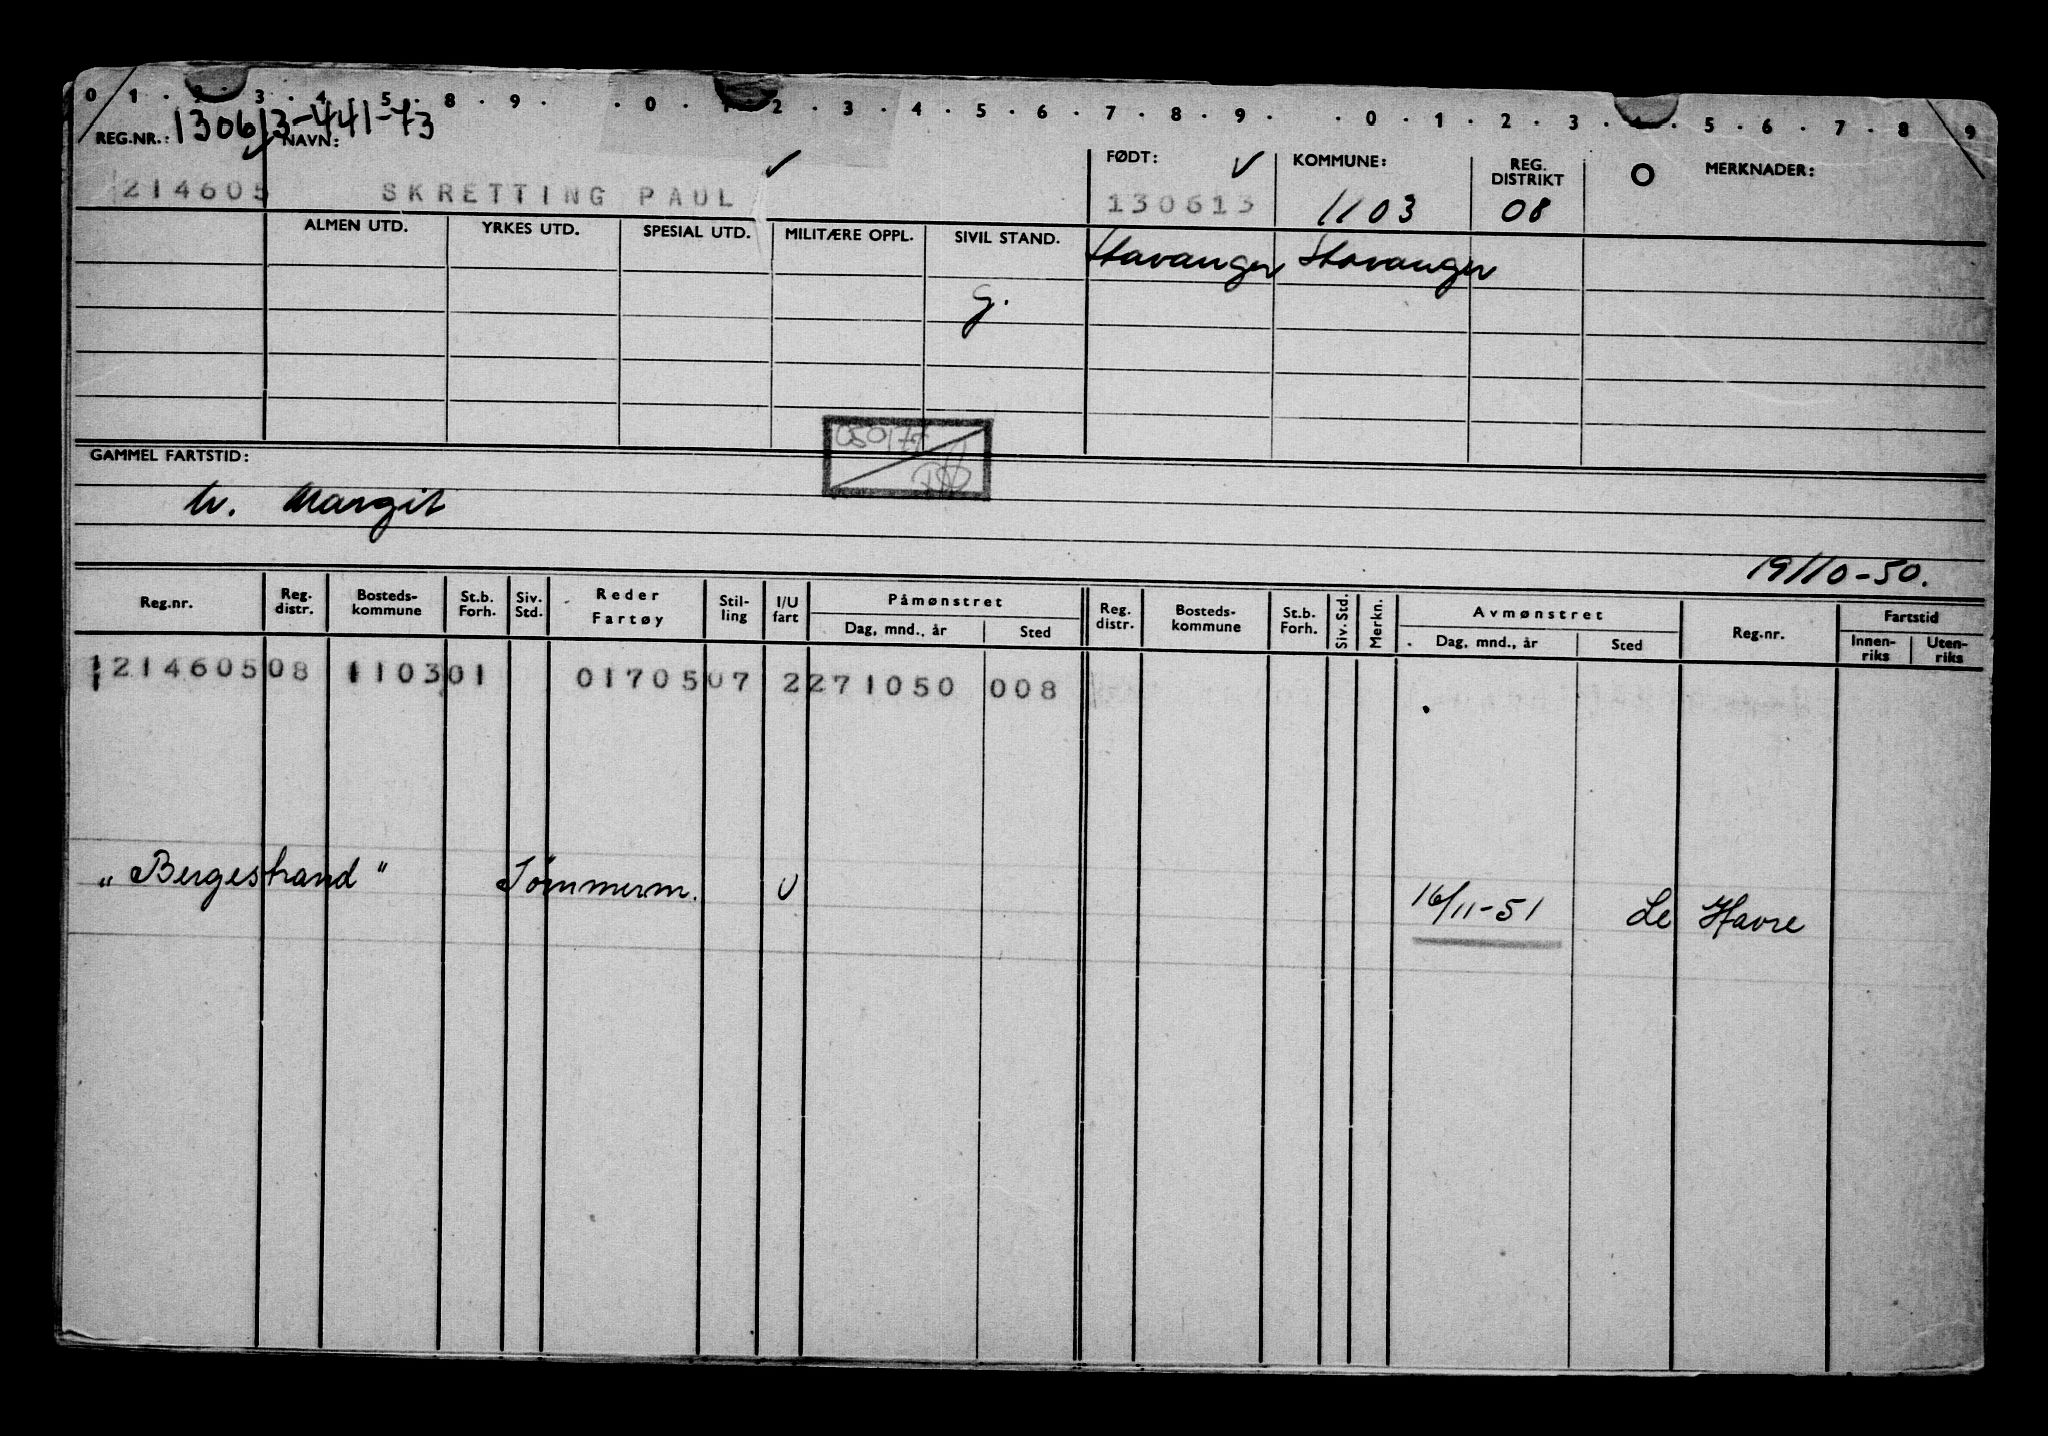 0 1 . 2 . 3 . 4 . 5 . 8 . 9 . . 0 . 1 . 2 . 3 . 4 . 5 . 6 . 7 . 8 . 9 . . 0 . 1 . 2 . 3 . 4 . 5 . 6 . 7 . 8 9
REG.NR.: 130613-441-73 NAVN: FØDT: KOMMUNE: REG. DISTRIKT MERKNADER:
214605 SKRETTING PAUL 130613 1103 08
ALMEN UTD. YRKES UTD. SPESIAL UTD. MILITÆRE OPPL. SIVIL STAND. Stavanger Stavanger
G.
050177
GAMMEL FARTSTID:
h. Margit
19/10-50.
Reg.nr. Reg. distr. Bosteds- kommune St.b. Forh. Siv. Std. Reder Fartøy Stil- ling I/U fart Påmønstret Dag, mnd., år Sted Reg. distr. Bosteds- kommune St.b. Forh. Siv. Std. Merkn. Avmønstret Dag, mnd., år Sted Reg.nr. Fartstid Innen- riks Uten- riks
121460508 110301 0170507 2271050 008
„Bergestrand" Tømmerm. U 16/11-51 Le Havre